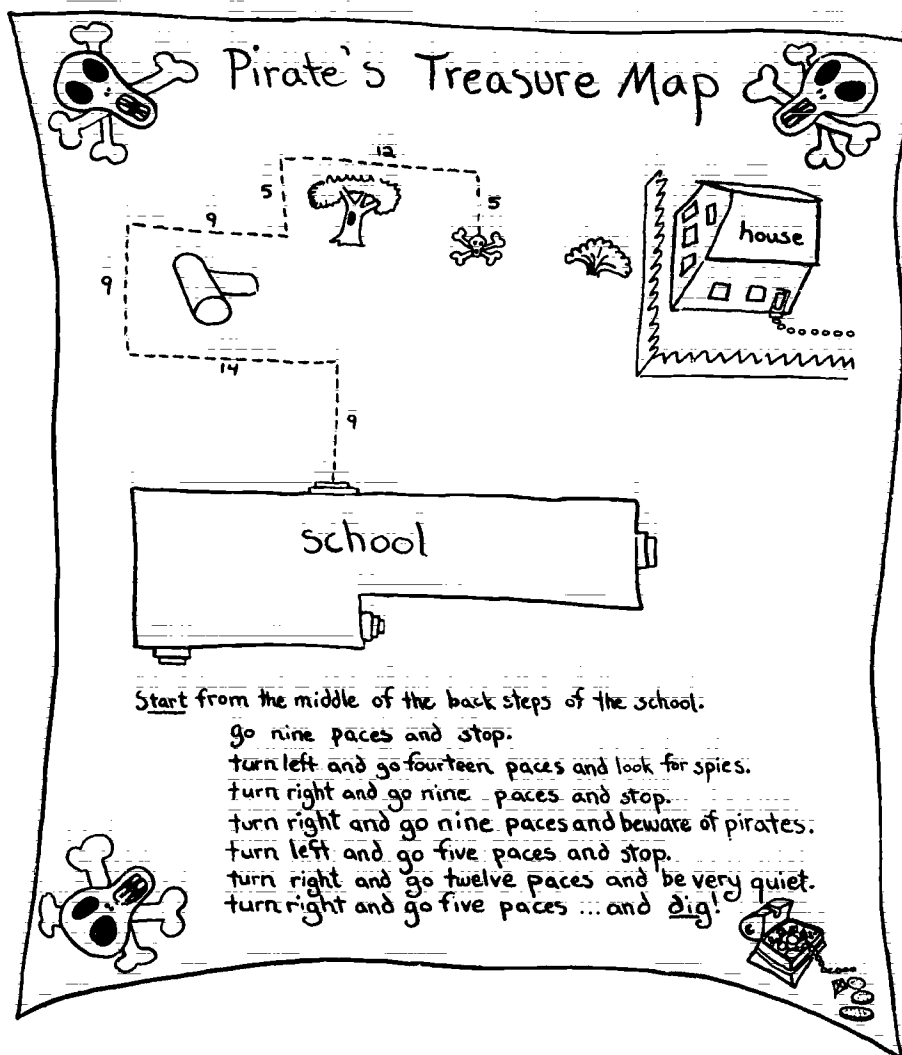 Pirate's Treasure Map
12
5
5
9
house
9
14
9
school
Start from the middle of the back steps of the school.
go nine paces and stop.
turn left and go fourteen paces and look for spies.
turn right and go nine paces and stop.
turn right and go nine paces and beware of pirates.
turn left and go five paces and stop.
turn right and go twelve paces and be very quiet.
turn right and go five paces ... and dig!